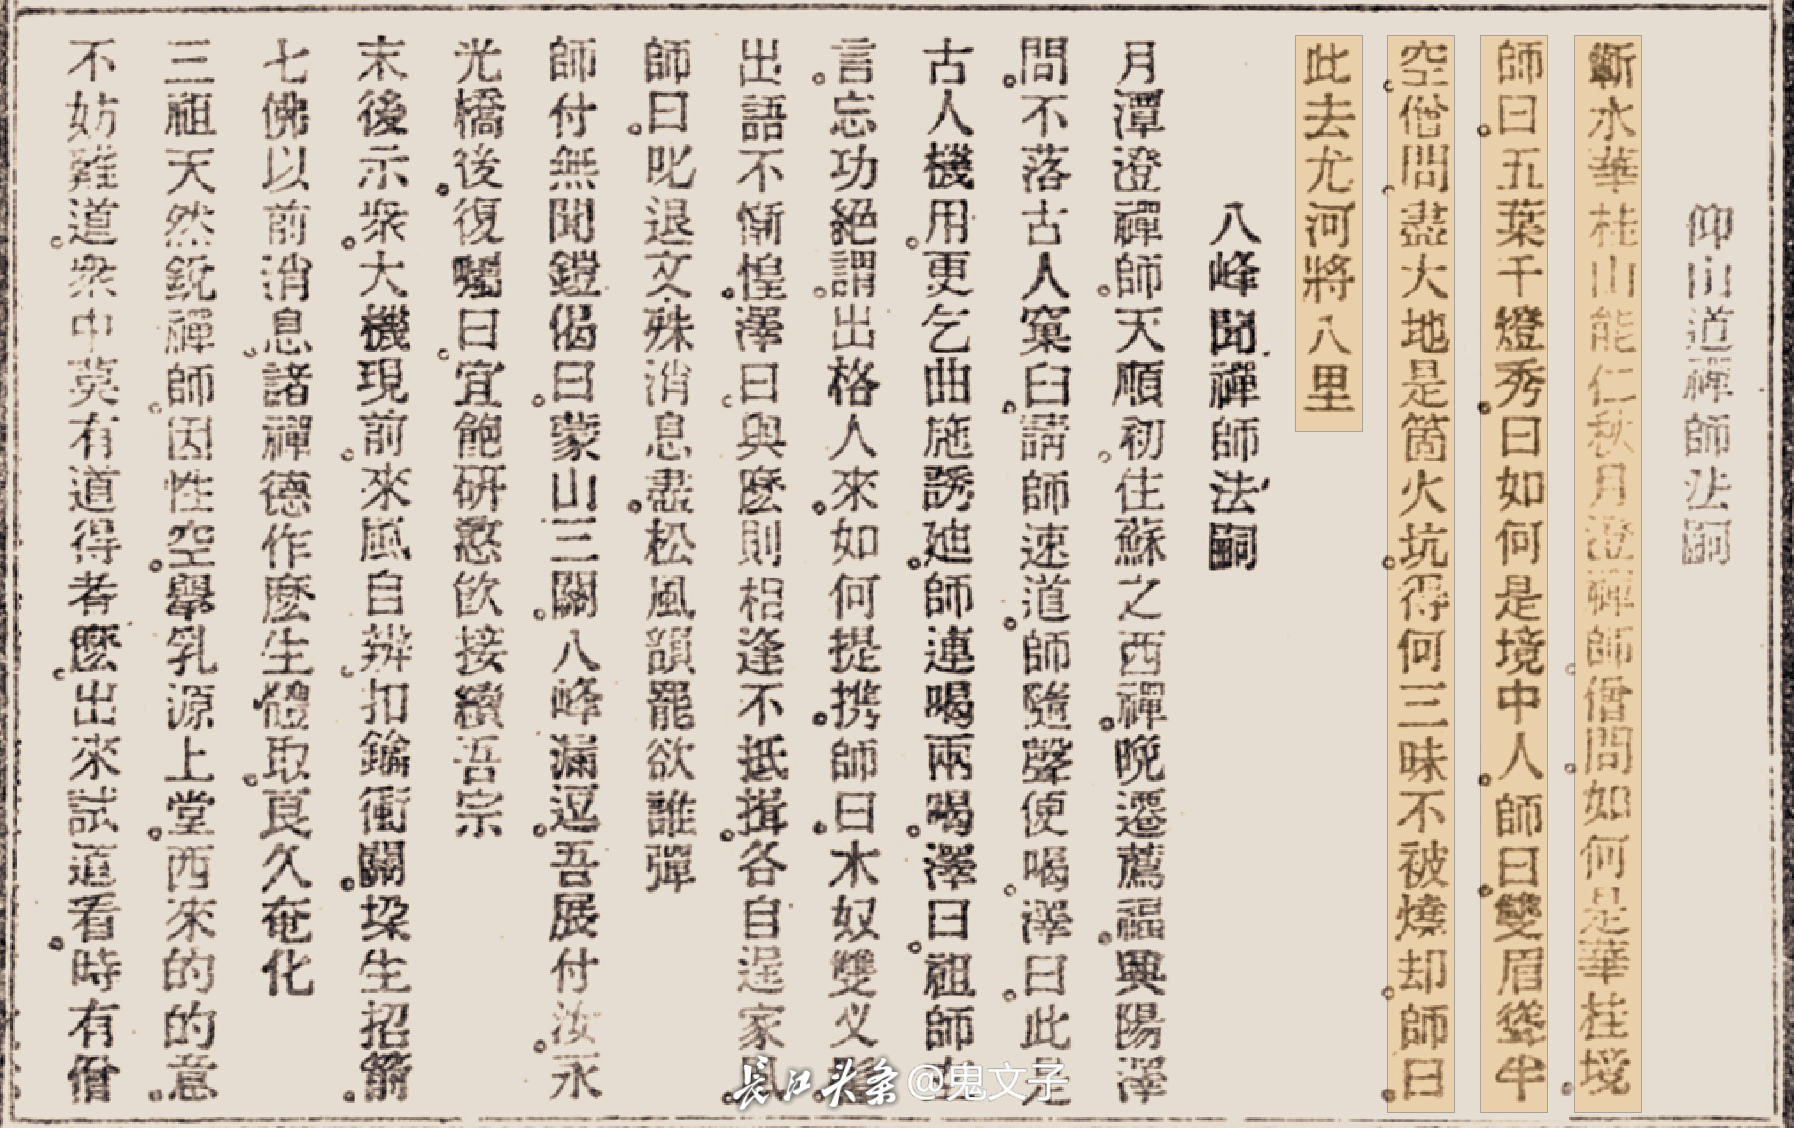 仰山道禪師法嗣
蘄水華桂山能仁秋月澄禪師僧問如何是華桂境
師曰五葉千燈秀曰如何是境中人師曰雙眉聳半
空僧問盡大地是箇火坑得何三昧不被燒却師曰
此去尤河將八里
八峰聞禪師法嗣
月潭澄禪師天順初住蘇之西禪晚遷薦福興陽澤
問不落古人窠臼請師速道師隨聲便喝澤曰此是
古人機用更乞曲施誘廸師連喝兩喝澤曰祖師
言忘功絕謂出格人來如何提携師曰木奴雙义
出語不慚惶澤曰與麼則相逢不抵揖各自逞家風
師曰叱退文殊消息盡松風韻罷欲誰彈
師付無聞鎧偈曰蒙山三關八峰漏逗吾展付汝永
光橋後復囑曰宜飽研憨飮接續吾宗
末後示衆大機現前來風自辨扣鑰衝關垜生招箭
七佛以前消息諸禪德作麼生體取莨久奄化
三祖天然銳禪師因性空舉乳源上堂西來的的意
不妨難道衆中莫有道得者麼出來試道看時有僧
長江头条 @鬼文子